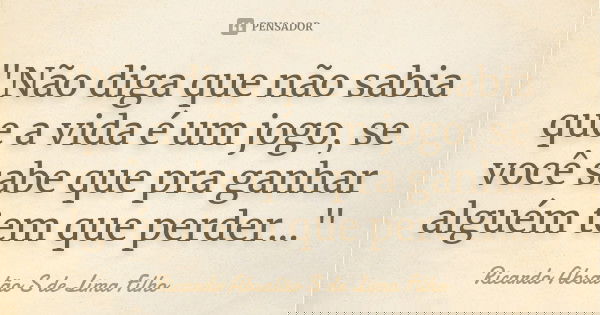 PENSADOR
"Não diga que não sabia
que a vida é um jogo, se
você sabe que pra ganhar
alguém tem que perder... "
Ricardo Absalão S de Lima Filho